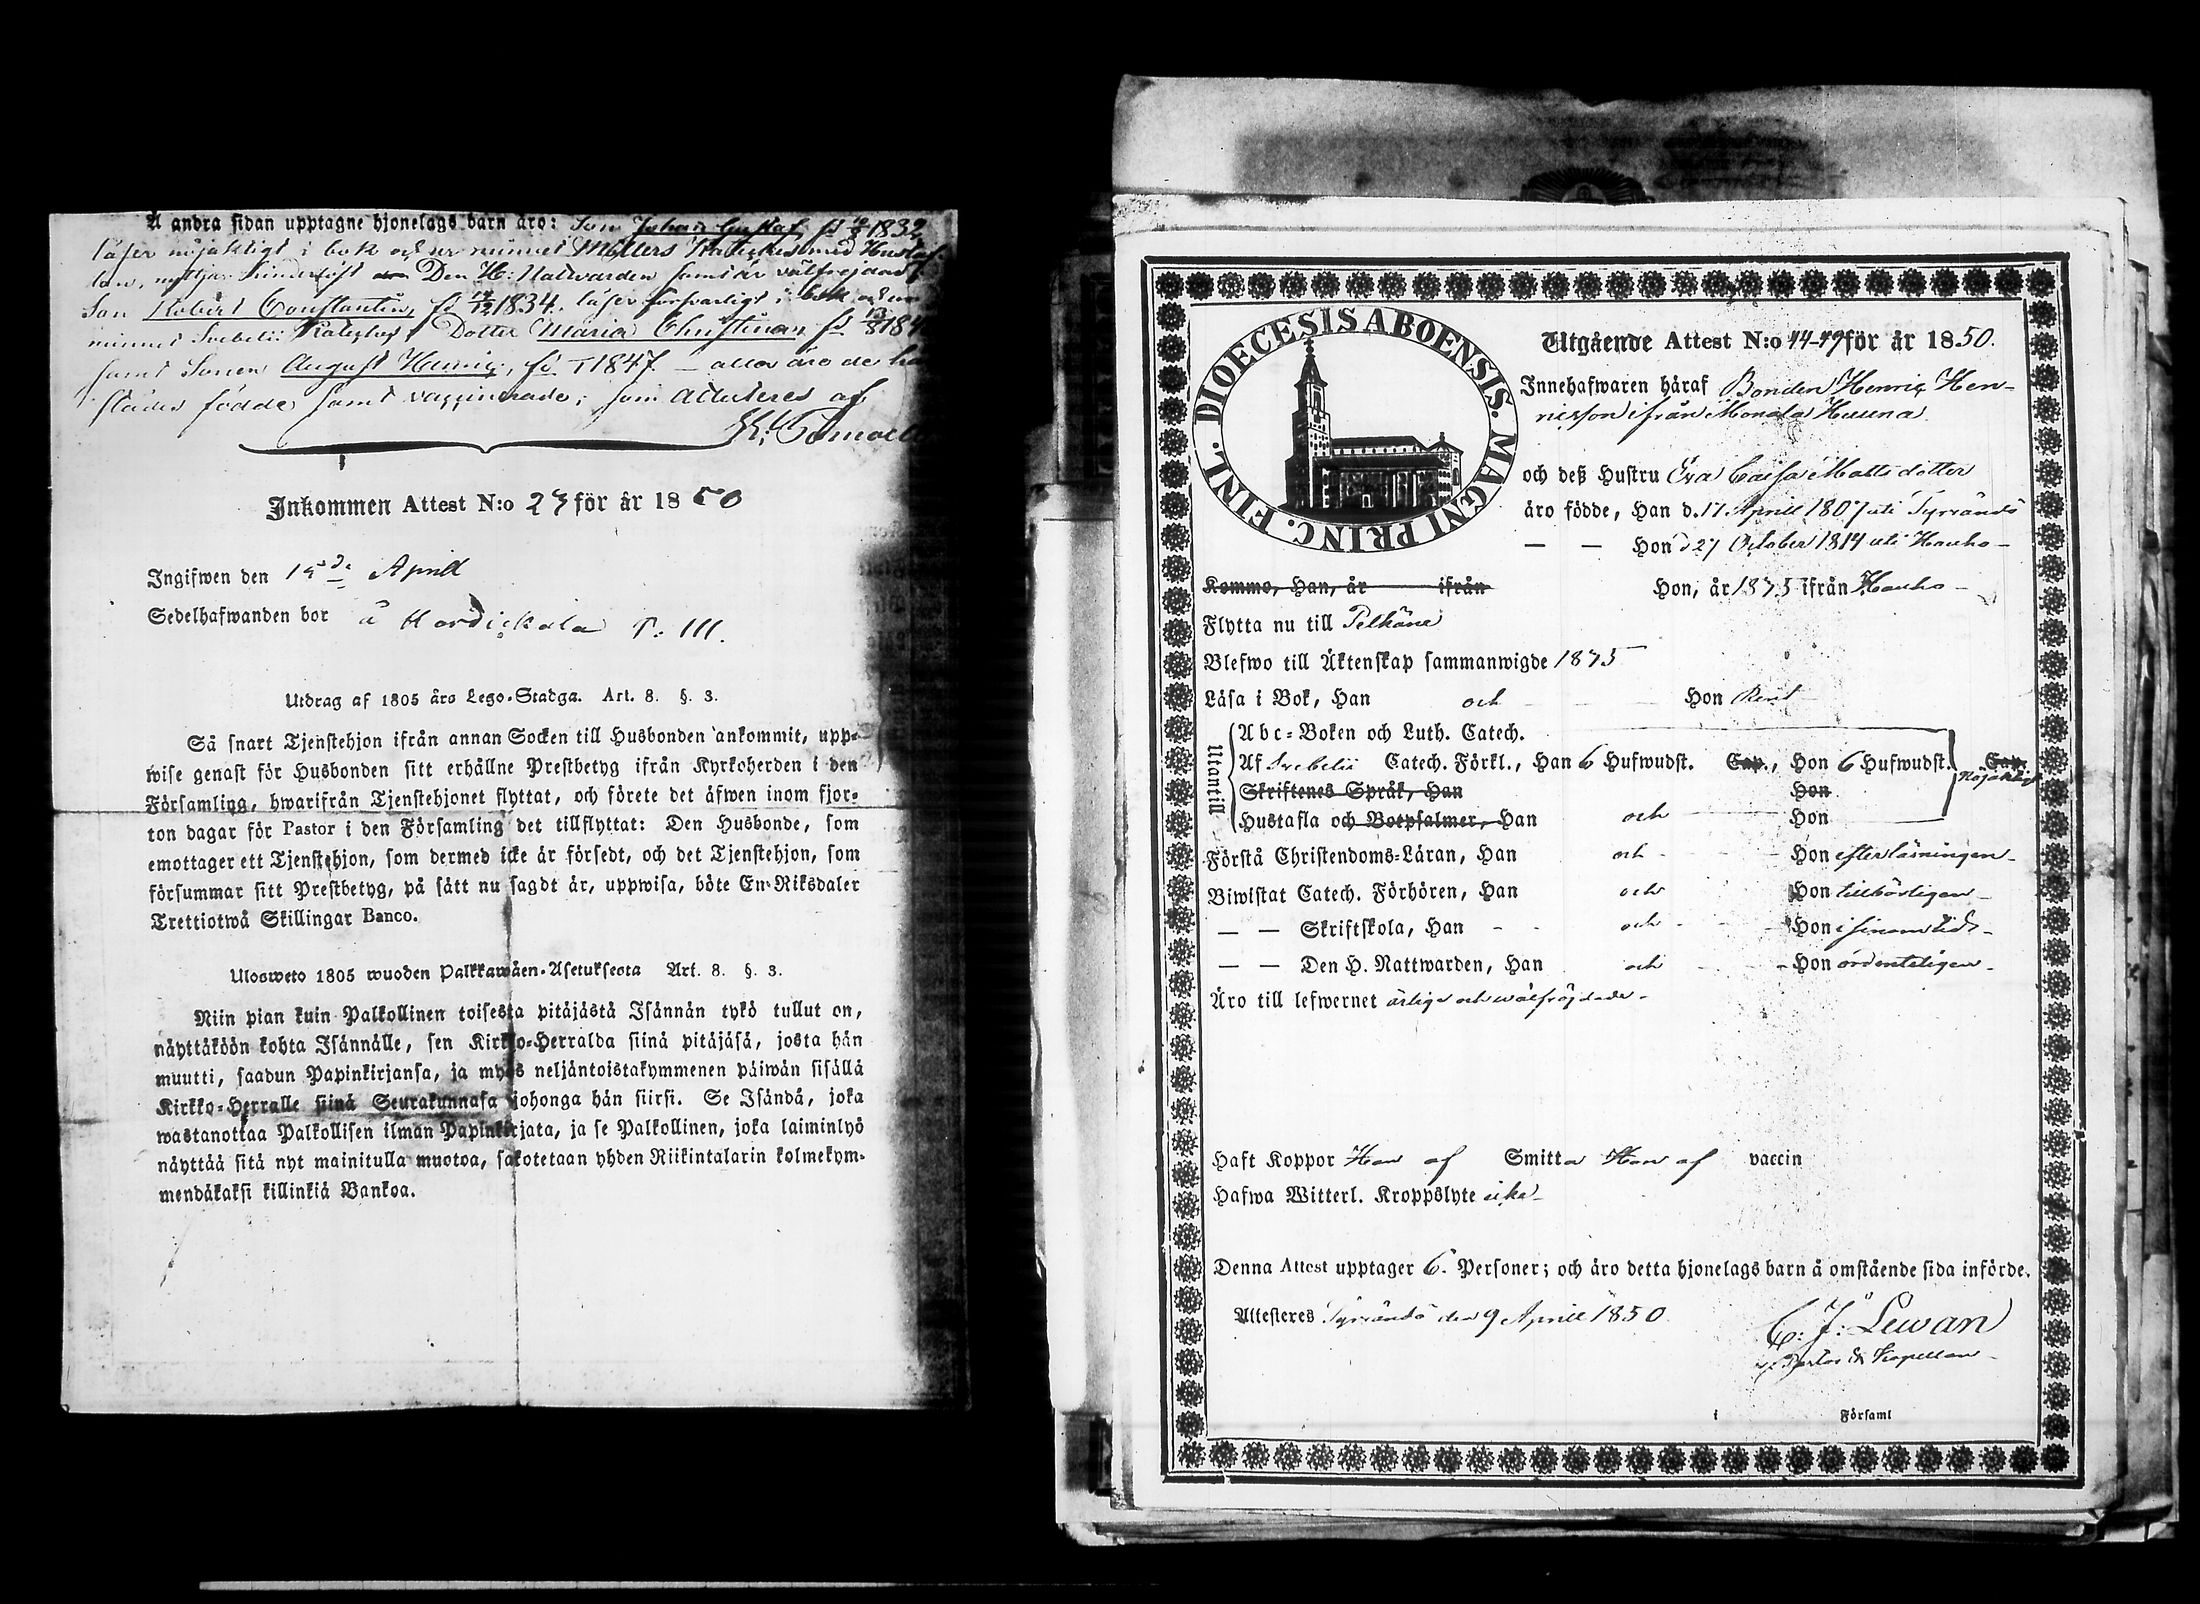 Å andra sidan upptagne hjonelags barn äro: Son Johan Gustaf, fd 1832
läser nöjaktigt i bok och ur minnet Möllers Kateches med Hustaf-
lan, Den H: Nattvarden samt är välfrejdad
Son Robert Constantin, fd 1834. läser försvarligt i bok och ur
minnet Svebelii Kateches, Dotter Maria Christina fd
samt Sonen August Henric, fd 1847 — alla äro de här
städes födde samt vaccinerade; som attesteras af
Inkommen Attest N:o 27 för år 1850
Ingifwen den 15de April
Sedelhafwanden bor å P: III.
Utdrag af 1805 års Lego-Stadga. Art. 8. §. 3.
Så snart Tjenstehjon ifrån annan Socken till Husbonden ankommit, upp-
wise genast för Husbonden sitt erhållne Prestbetyg ifrån Kyrkoherden i den
Församling, hwarifrån Tjenstehjonet flyttat, och förete det äfwen inom fjor-
ton dagar för Pastor i den Församling det tillflyttat: Den Husbonde, som
emottager ett Tjenstehjon, som dermed icke är försedt, och det Tjenstehjon, som
försummar sitt Prestbetyg, på sätt nu sagdt är, uppwisa, böte En Riksdaler
Trettiotwå Skillingar Banco.
Ulosweto 1805 wuoden Palkkawäen-Asetuksesta Art. 8. §. 3.
Niin pian kuin Palkollinen toisesta pitäjästä Isännän tykö tullut on,
näyttäköön kohta Isännälle, sen Kirkko-Herralda siinä pitäjäsä, josta hän
muutti, saadun Papinkirjansa, ja myös neljäntoistakymmenen päiwän sisällä
Kirkko-Herralle siinä Seurakunnasa johonga hän siirsi. Se Isändä, joka
wastanottaa Palkollisen ilman Papinkirjata, ja se Palkollinen, joka laiminlyö
näyttää sitä nyt mainitulla muotoa, sakotetaan yhden Riikintalarin kolmekym-
mendäkaksi killinkiä Bankoa.
DIOECESIS ABOENSIS. MAGNI PRINC. FINL.
Utgående Attest N:o 44-49 för år 1850.
Innehafwaren häraf Bonden Henric Hen-
ricsson ifrån Monala Hauna
och deß Hustru Eva Caisa Mattsdotter
äro födde, Han d. 17 April 1807 uti Tyrvändö
— — Hon d 27 October 1814 uti Hauho —
Komme, Han, år ifrån Hon, år 1835 ifrån Hauho —
Flytta nu till Pelkäne
Blefwo till Äktenskap sammanwigde 1835
Läsa i Bok, Han och Hon Rent
Utantill
Abc-Boken och Luth. Catech.
Af Svebelii Catech. Förkl., Han 6 Hufwudst. Cap., Hon 6 Hufwudst. Cap. Nöjaktigt
Skriftenes Språk, Han Hon
Hustafla och Botpsalmer, Han och Hon
Förstå Christendoms-Läran, Han och Hon efter läsningen —
Biwistat Catech. Förhören, Han och Hon tillbörligen —
— — Skriftskola, Han och Hon i sinom tid —
— — Den H. Nattwarden, Han och Hon ordenteligen —
Äro till lefwernet ärlige och wälfrejdade —
Haft Koppor Han af Smitta Hon af vaccin
Hafwa Witterl. Kroppslyte icke —
Denna Attest upptager 6. Personer; och äro detta hjonelags barn å omstående sida införde.
Attesteras Tyrvändö den 9 April 1850.
C: J: Lewan
Pastor & Kapellan
i Församl